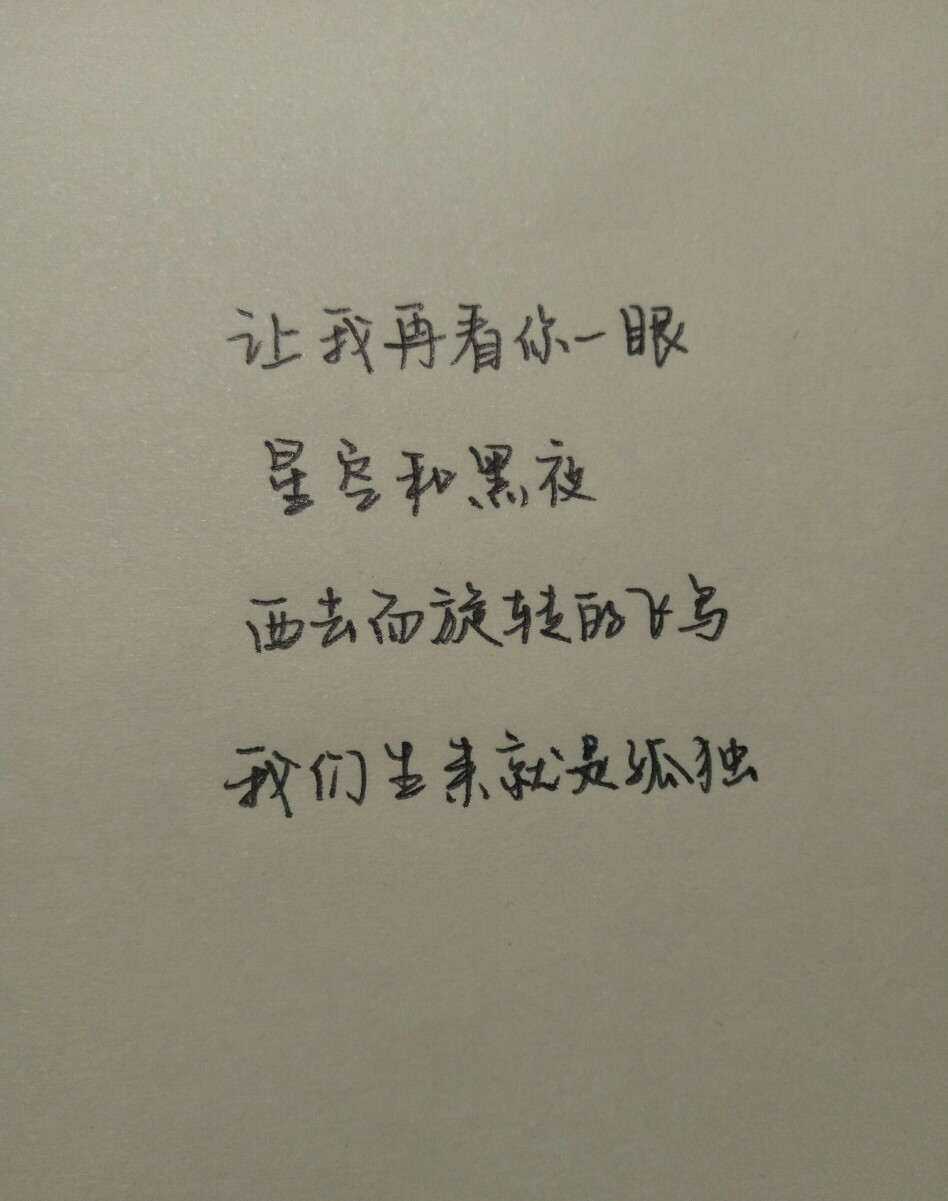 让我再看你一眼
星空和黑夜
西去而旋转的飞鸟
我们生来就是孤独